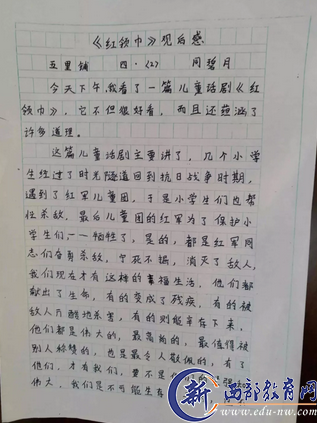 《红领巾》观后感
五里铺 四·(2) 闫碧月
今天下午,我看了一篇儿童话剧《红
领巾》,它不但很好看,而且还蕴涵了
许多道理。
这篇儿童话剧主要讲了,几个小学
生经过了时光隧道回到抗日战争时期,
遇到了红军儿童团,于是小学生们也帮
忙杀敌,最后儿童团的红军为了保护小
学生们,一一牺牲了,是的,都是红军同
志们奋勇杀敌,宁死不屈,消灭了敌人,
我们现在才有这样的幸福生活,他们都
献出了生命,有的变成了残疾,有的被
敌人万酷地杀害,有的则能幸存下来,
他们都是伟大的,最高尚的,最值得被
别人称赞的,也是最令人敬佩的,有了
他们,才有我们,要不是
伟大,我们是不可能生存
新 西部教育网
www.edu-nw.com